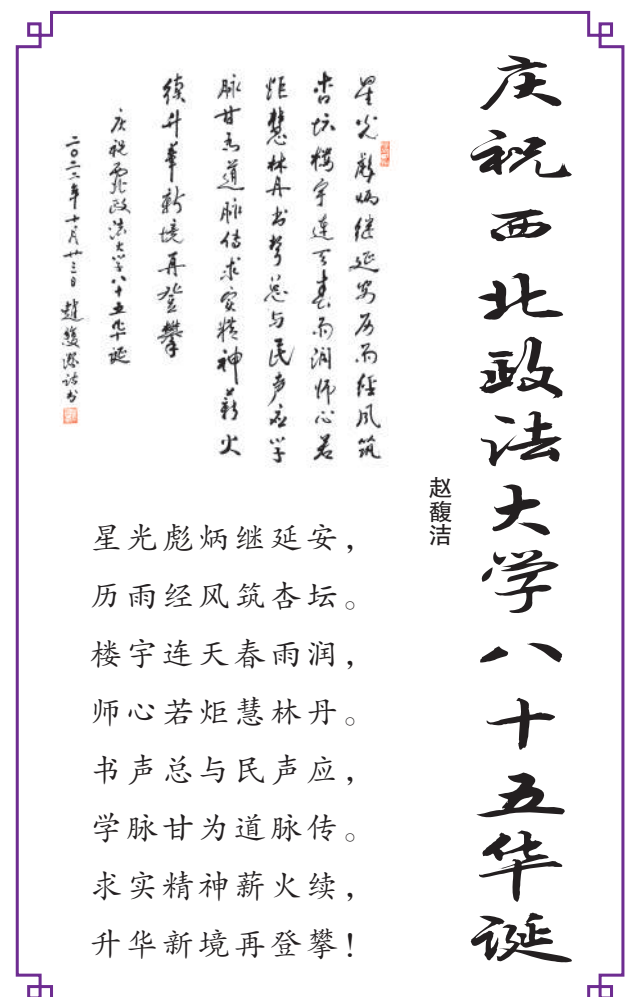 庆祝西北政法大学八十五华诞
赵馥洁
星光彪炳继延安历雨经风筑
杏坛楼宇连天春雨润师心若
炬慧林丹书声总与民声应学
脉甘为道脉传求实精神薪火
续升华新境再登攀
庆祝西北政法大学八十五华诞
二〇二二年十月廿三日 趙馥潔诗书
星光彪炳继延安，
历雨经风筑杏坛。
楼宇连天春雨润，
师心若炬慧林丹。
书声总与民声应，
学脉甘为道脉传。
求实精神薪火续，
升华新境再登攀！